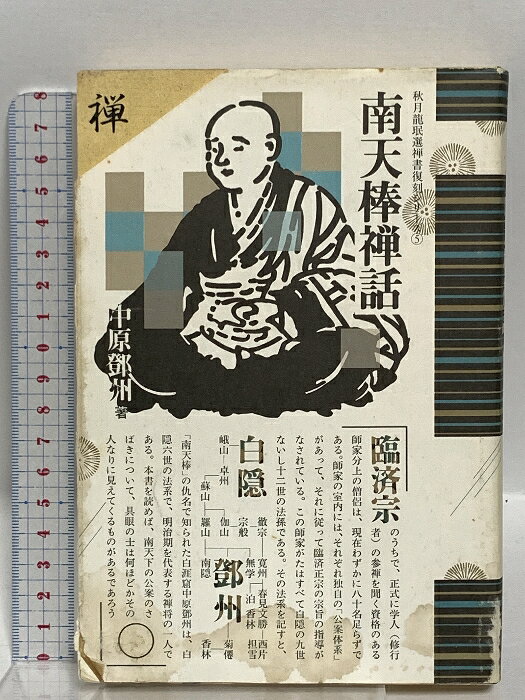 禅
秋月龍珉選禅書復刻シリーズ⑤
南天棒禅話
中原鄧州著
臨済宗のうちで、正式に学人(修行
者)の参禅を聞く資格のある
師家分上の僧侶は、現在わずかに八十名足らずで
ある。師家の室内には、それぞれ独自の「公案体系」
があって、それに従って臨済正宗の宗旨の指導が
なされている。この師家がたはすべて白隠の九世
ないし十二世の法孫である。その法系を記すと、
白隠
峨山
卓州
蘇山
羅山
伽山
南隠
鄧州
徹宗
宗般
寛州
無学
春見文勝
泊香林
西片担雪
菊僊
香林
「南天棒」の仇名で知られた白涯窟中原鄧州は、白
隠六世の法系で、明治期を代表する禅将の一人で
ある。本書を読めば、南天下の公案のさ
ばきについて、具眼の士は何ほどかその
人なりに見えてくるものがあるであろう
0
1
2
3
4
5
6
7
8